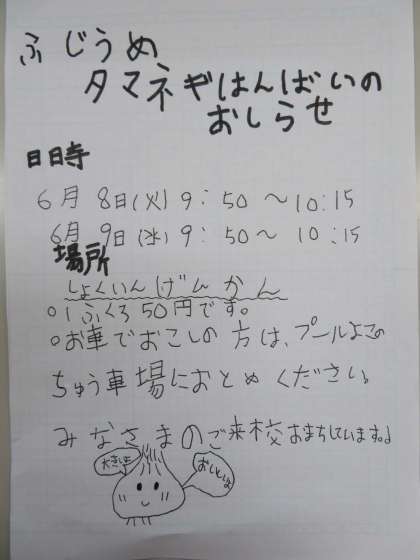 ふじうめ
タマネギはんばいの
おしらせ
日日寺
6月 8日(火)9:50〜10:15
6月 9日(水)9:50〜10:15
場所
しょくいんげんかん
○1ふくろ50円です。
○お車でおこしの方は、プールよこの
ちゅう車場におとめください。
みなさまのご来校おまちしています。♩
大きいよ
おいしいよ